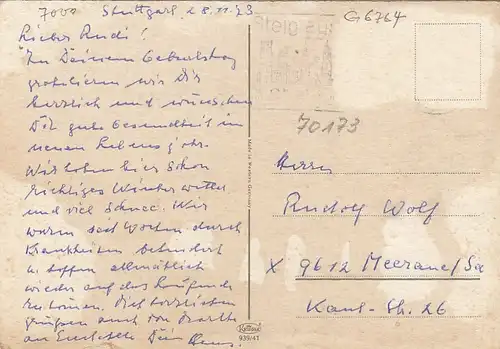 7000 Stuttgart 28.11.73
Lieber Rudi!
Zu Deinem Geburtstag
gratulieren wir Dir
herzlich und wünschen
Dir gute Gesundheit im
neuen Lebensjahr.
Wir haben hier schon
richtiges Winterwetter
und viel Schnee. Wir
waren seit Wochen durch
Krankheiten behindert
u. hoffen allmählich
wieder auf das Laufende
zu kommen. Die herzlichsten
Grüßen auch von
an Dein Hans.
G6764
70173
Made in Western Germany
Herrn
Rudolf Wolf
X 9612 Meerane/Sa
Kant-Str. 26
939/41